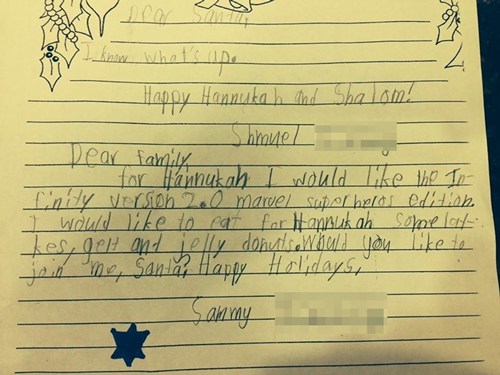 Dear Santa,
I know what's up.
Happy Hannukah and Shalom!
Shmuel
Dear family,
for Hannukah I would like the In-
finity version 2.0 marvel super heros edition.
I would like to eat for Hannukah some lat-
kes, gelt and jelly donuts. Would you like to
join me, Santa? Happy Holidays,
Sammy